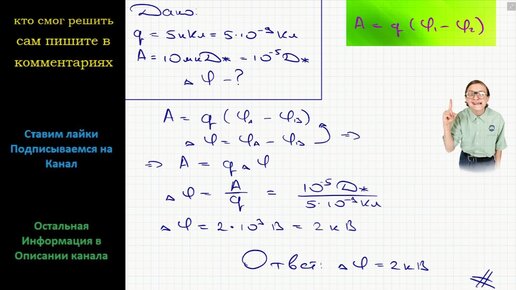 кто смог решить
сам пишите в
комментариях
Ставим лайки
Подписываемся на
Канал
Остальная
Информация в
Описании канала
Дано:
q = 5нКл = 5·10⁻⁹Кл
A = 10мкДж = 10⁻⁵Дж
△φ – ?
A = q (φ₁ – φ₂)
A = q (φA – φB)
△φ = φA – φB ⇒
⇒ A = q△φ
△φ = A/q = 10⁻⁵Дж / 5·10⁻⁹Кл
△φ = 2·10³В = 2кВ
Ответ: △φ = 2кВ